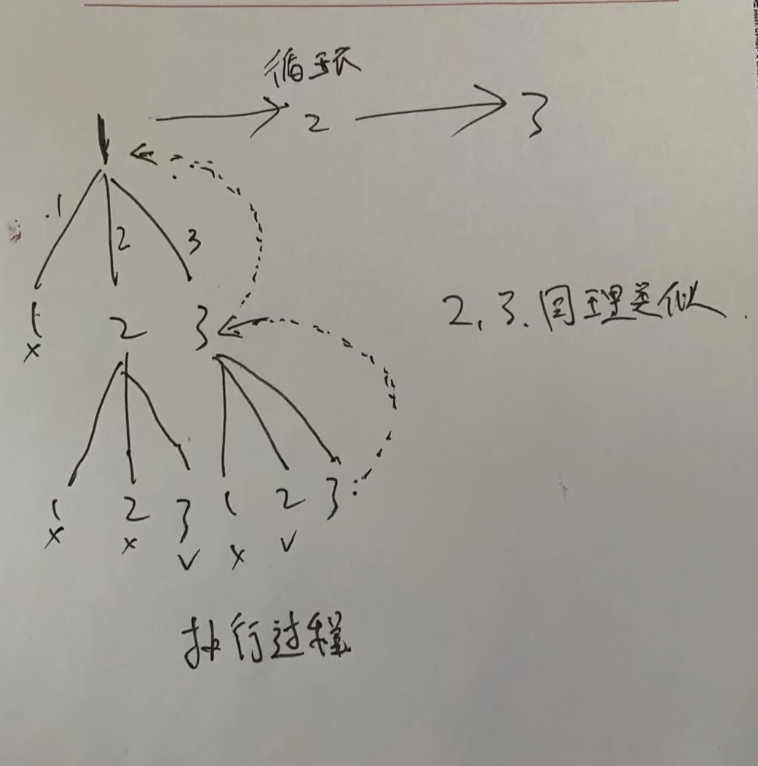 循环
1 2 3
1 2 3
1 2 3
x
2,3.同理类似.
1 2 3 1 2 3
x x v x v
执行过程